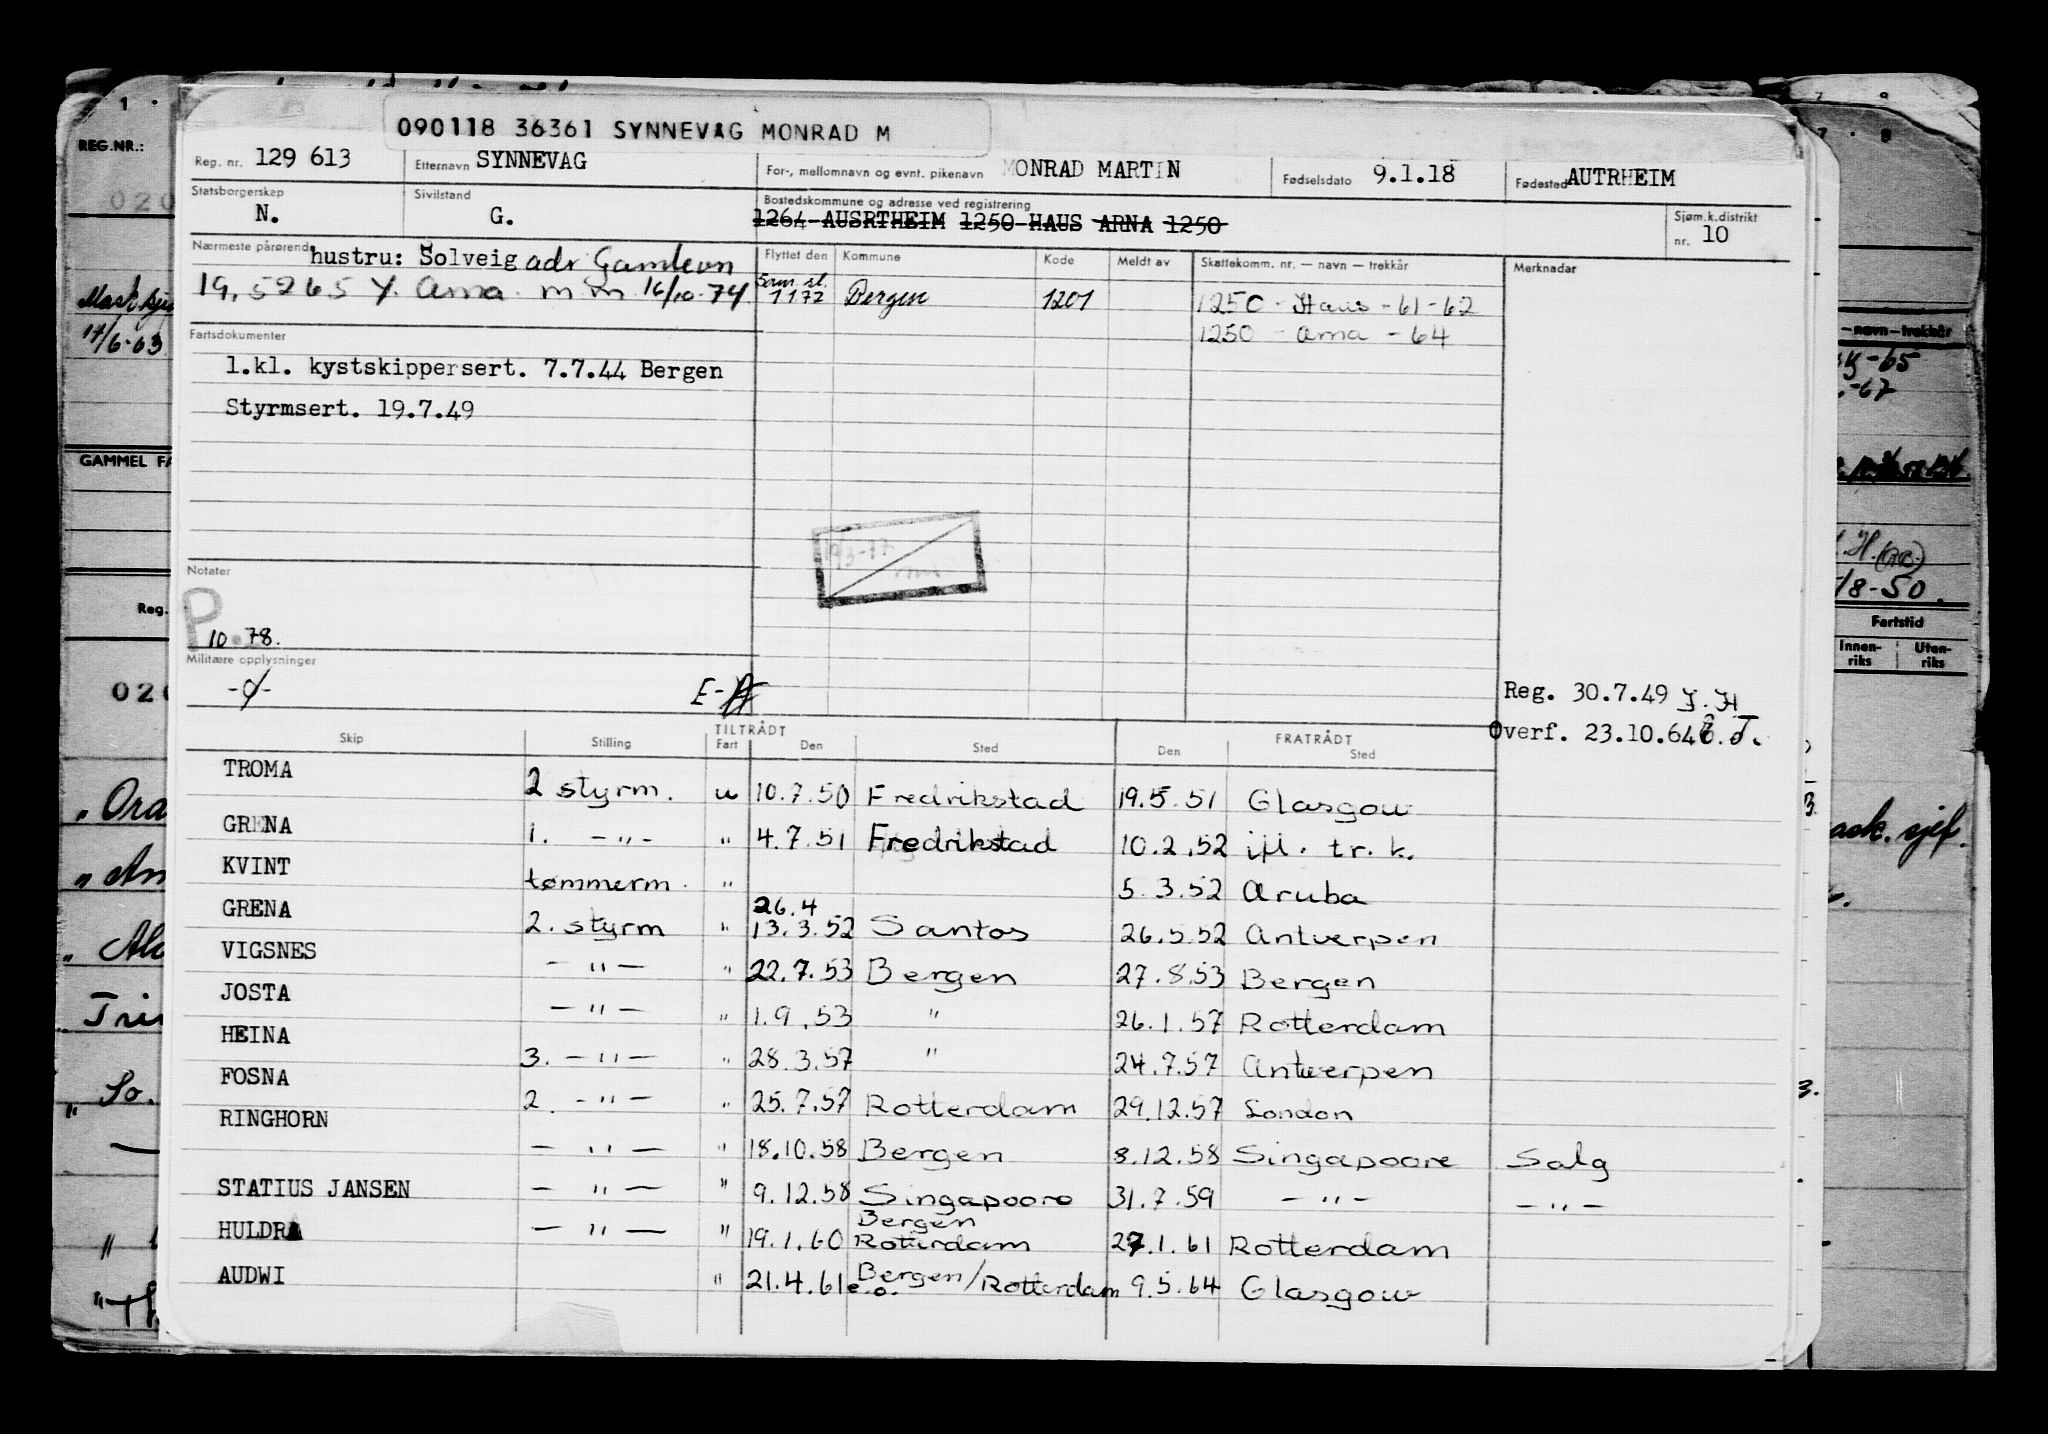 090118 36361 SYNNEVAG MONRAD M
Reg. nr. 129 613 Etternavn SYNNEVAG For-, mellomnavn og evnt. pikenavn MONRAD MARTIN Fødselsdato 9.1.18 Fødested AUTRHEIM
Statsborgerskap N. Sivilstand G. Bostedskommune og adresse ved registrering 1264 AUSRTHEIM 1250 HAUS ARNA 1250 Sjøm.k.distrikt nr. 10
Nærmeste pårørende hustru: Solveig adr Gamlevn
19, 5265 Y. Arna. m.m. 16/10-74
Flyttet den Kommune Kode Meldt av Skattekomm. nr. — navn — trekkår Merknadar
1172 Bergen 1201 1250 - Haus - 61-62
1250 - Arna - 64
Fartsdokumenter
1.kl. kystskippersert. 7.7.44 Bergen
Styrmsert. 19.7.49
Notater
P
10.78.
Militære opplysninger
-o-
Reg. 30.7.49 J.H
Overf. 23.10.64
Skip Stilling TILTRÅDT Fart Den Sted FRATRÅDT Den Sted
TROMA 2 styrm. u 10.7.50 Fredrikstad 19.5.51 Glasgow
GRENA 1. — " — " 4.7.51 Fredrikstad 10.2.52 ifl. tr. k.
KVINT tømmerm. " 5.3.52 Aruba
26.4
GRENA 2. styrm " 13.3.52 Santos 26.5.52 Antwerpen
VIGSNES — " — " 22.7.53 Bergen 27.8.53 Bergen
JOSTA — " — " 1.9.53 " 26.1.57 Rotterdam
HEINA 3. — " — " 28.3.57 " 24.7.57 Antwerpen
FOSNA 2. — " — " 25.7.57 Rotterdam 29.12.57 London
RINGHORN — " — " 18.10.58 Bergen 8.12.58 Singapoore Salg
STATIUS JANSEN — " — " 9.12.58 Singapoore 31.7.59 — " — — " —
Bergen
HULDRA — " — " 19.1.60 Rotterdam 27.1.61 Rotterdam
AUDWI " 21.4.61 e.o. Bergen/Rotterdam 9.5.64 Glasgow
REG.NR.:
17/6-63
GAMMEL
Reg.
—navn—trekkår
-65
-67
18-50.
Fartstid
Innen-riks Uten-riks
sjef.